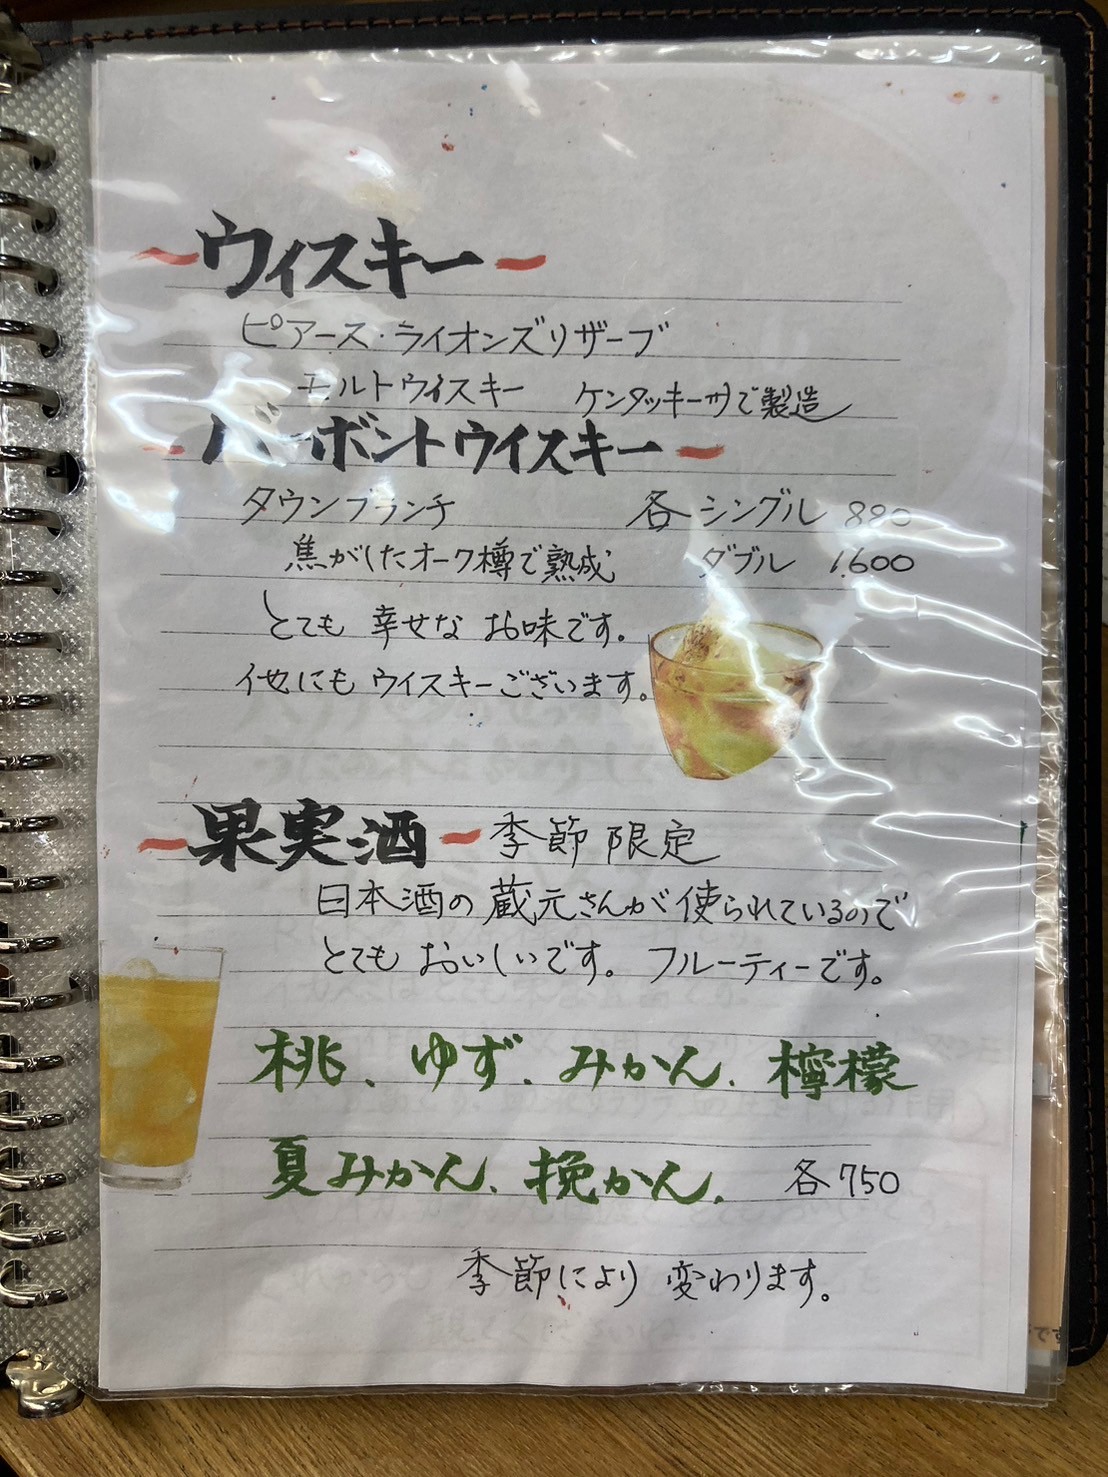 ウィスキー
ピアース・ライオンズリザーブ
モルトウイスキー ケンタッキー州で製造
バーボントウイスキー
タウンブランチ 各シングル 880
焦がしたオーク樽で熟成 ダブル 1,600
とても 幸せな お味です。
他にも ウイスキーございます。
果実酒 季節限定
日本酒の 蔵元さんが 使られているので
とても おいしいです。 フルーティーです。
桃、ゆず、みかん、檸檬
夏みかん、挽かん、 各750
季節により 変わります。